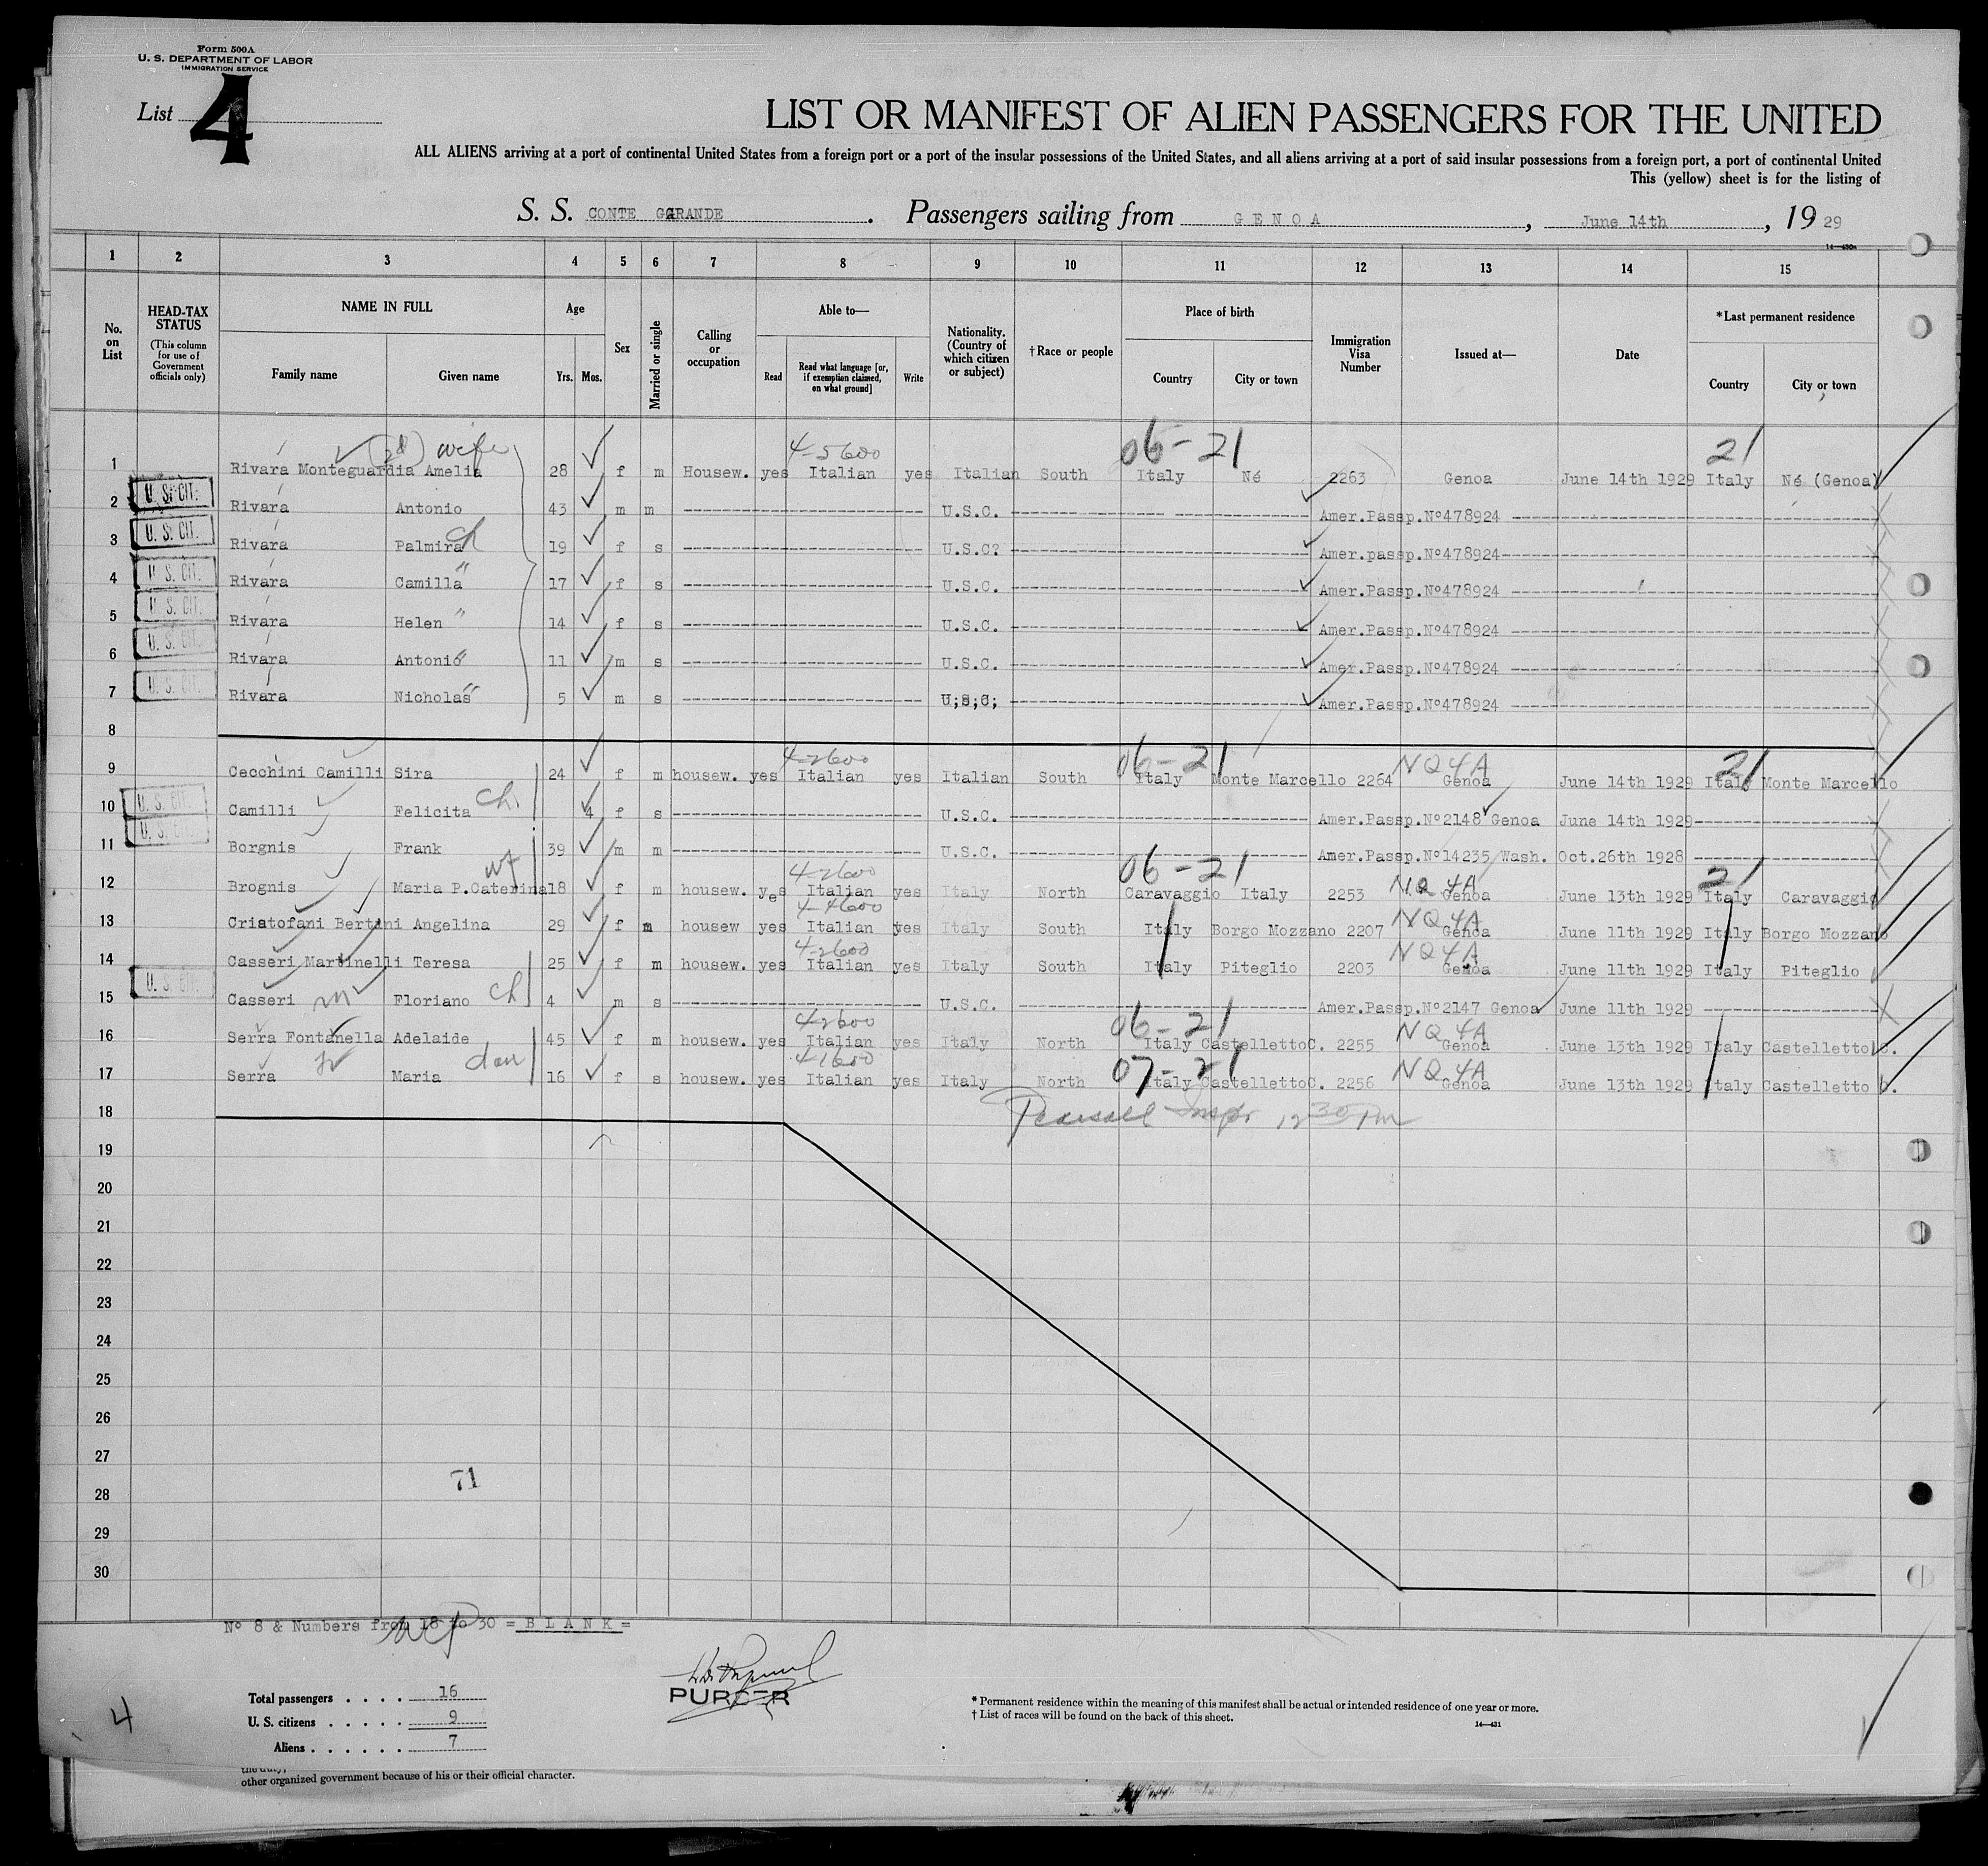 Form 500A
U. S. DEPARTMENT OF LABOR
IMMIGRATION SERVICE
List 4
LIST OR MANIFEST OF ALIEN PASSENGERS FOR THE UNITED
ALL ALIENS arriving at a port of continental United States from a foreign port or a port of the insular possessions of the United States, and all aliens arriving at a port of said insular possessions from a foreign port, a port of continental United
This (yellow) sheet is for the listing of
S. S. CONTE GRANDE . Passengers sailing from GENOA , June 14th , 19 29
14—430a
1 2 3 4 5 6 7 8 9 10 11 12 13 14 15
No. on List
HEAD-TAX STATUS (This column for use of Government officials only)
NAME IN FULL Family name Given name
Age Yrs. Mos.
Sex
Married or single
Calling or occupation
Able to— Read Read what language [or, if exemption claimed, on what ground] Write
Nationality. (Country of which citizen or subject)
† Race or people
Place of birth Country City or town
Immigration Visa Number
Issued at—
Date
* Last permanent residence Country City or town
(2d) wife 4-5600 06-21 21
1 Rivara Monteguardia Amelia 28 f m Housew. yes Italian yes Italian South Italy Né 2263 Genoa June 14th 1929 Italy Né (Genoa)
2 U. S. CIT. Rivara Antonio 43 m m U.S.C. Amer.Passp.Nº478924
3 U. S. CIT. Rivara Palmira ch 19 f s U.S.C? Amer.passp.Nº478924
4 U. S. CIT. Rivara Camilla " 17 f s U.S.C. Amer.Passp.Nº478924
5 U. S. CIT. Rivara Helen " 14 f s U.S.C. Amer.Passp.Nº478924
6 U. S. CIT. Rivara Antonio " 11 m s U.S.C. Amer.Passp.Nº478924
7 U. S. CIT. Rivara Nicholas " 5 m s U;S;C; Amer.Passp.Nº478924
8
4-2600 06-21 NQ4A 21
9 Cecchini Camilli Sira 24 f m housew. yes Italian yes Italian South Italy Monte Marcello 2264 Genoa June 14th 1929 Italy Monte Marcello
10 U. S. CIT. Camilli Felicita ch. 4 f s U.S.C. Amer.Passp.Nº2148 Genoa June 14th 1929
11 U. S. CIT. Borgnis Frank 39 m m U.S.C. Amer.Passp.Nº14235 Wash. Oct.26th 1928
wf 4-2600 06-21 NQ4A 21
12 Brognis Maria P.Caterina 18 f m housew. yes Italian yes Italy North Caravaggio Italy 2253 Genoa June 13th 1929 Italy Caravaggio
4-4600 NQ4A
13 Cristofani Bertini Angelina 29 f m housew yes Italian yes Italy South Italy Borgo Mozzano 2207 Genoa June 11th 1929 Italy Borgo Mozzano
4-2600 NQ4A
14 Casseri Martinelli Teresa 25 f m housew. yes Italian yes Italy South Italy Piteglio 2203 Genoa June 11th 1929 Italy Piteglio
15 U. S. CIT. Casseri Floriano ch 4 m s U.S.C. Amer.Passp.Nº2147 Genoa June 11th 1929
4-2600 06-21 NQ4A
16 Serra Fontanella Adelaide 45 f m housew. yes Italian yes Italy North Italy CastellettoC. 2255 Genoa June 13th 1929 Italy Castelletto C.
4-1600 07-21 NQ4A
17 Serra Maria dau 16 f s housew. yes Italian yes Italy North Italy CastellettoC. 2256 Genoa June 13th 1929 Italy Castelletto C.
18 Pearsall Inspr 12 30 PM
19
20
21
22
23
24
25
26
27
71
28
29
30
Nº 8 & Numbers from 18 to 30 = B L A N K =
Total passengers . . . . 16
U. S. citizens . . . . . 9
Aliens . . . . . . 7
4
PURSER
* Permanent residence within the meaning of this manifest shall be actual or intended residence of one year or more.
† List of races will be found on the back of this sheet.
14—431
other organized government because of his or their official character.